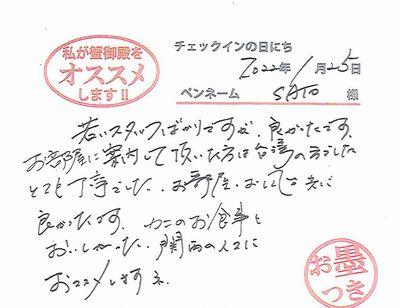 私が蟹御殿を
オススメ
します!!
チェックインの日にち
2022年 1月25日
ペンネーム SATO 様
若いスタッフばかりですが、良かったです。
お部屋に案内して頂いた方は台湾の方でした
とても丁寧でした。お部屋、おふろ共に
良かったです。カニのお食事も
おいしかった。関西の人に
おススメしますネ
お墨
つき